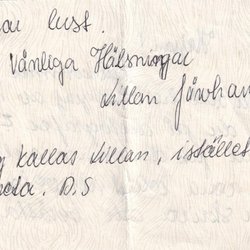 lust.
Vänliga Hälsningar
Lillan
kallas Lillan, istället
D.S